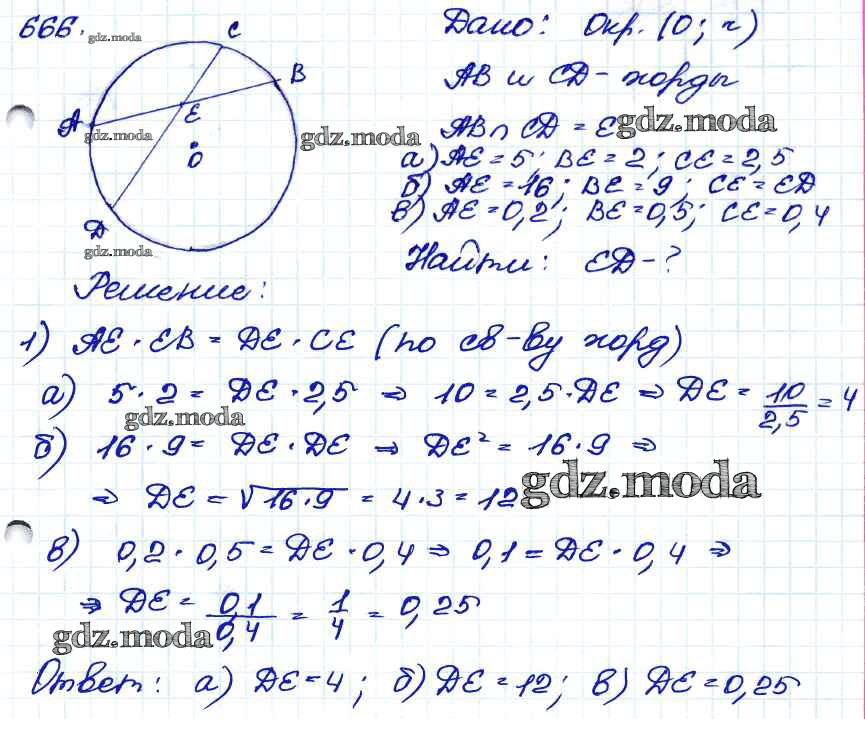 666. gdz.moda
C
B
A
E
gdz.moda
O
D
gdz.moda
gdz.moda
Дано: Окр. (O; r)
AB и CD - хорды
AB ∩ CD = E gdz.moda
а) AE = 5; BE = 2; CE = 2,5
б) AE = 16; BE = 9; CE = ED
в) AE = 0,2; BE = 0,5; CE = 0,4
Найти: ED - ?
Решение:
1) AE · EB = DE · CE (по св-ву хорд)
а) 5 · 2 = DE · 2,5 ⇒ 10 = 2,5 · DE ⇒ DE = 10/2,5 = 4
gdz.moda
б) 16 · 9 = DE · DE ⇒ DE² = 16 · 9 ⇒
⇒ DE = √16 · 9 = 4 · 3 = 12 gdz.moda
в) 0,2 · 0,5 = DE · 0,4 ⇒ 0,1 = DE · 0,4 ⇒
⇒ DE = 0,1/0,4 = 1/4 = 0,25
gdz.moda
Ответ: а) DE = 4; б) DE = 12; в) DE = 0,25